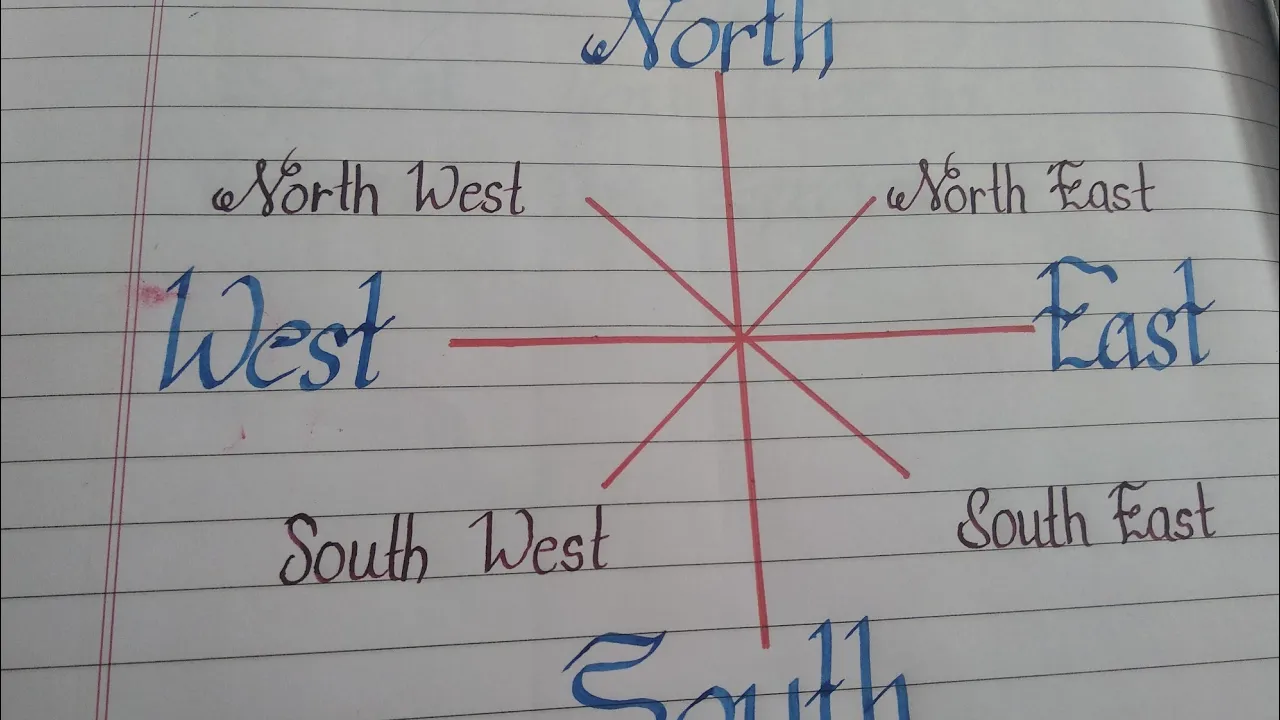 North
North West
North East
West
East
South West
South East
South